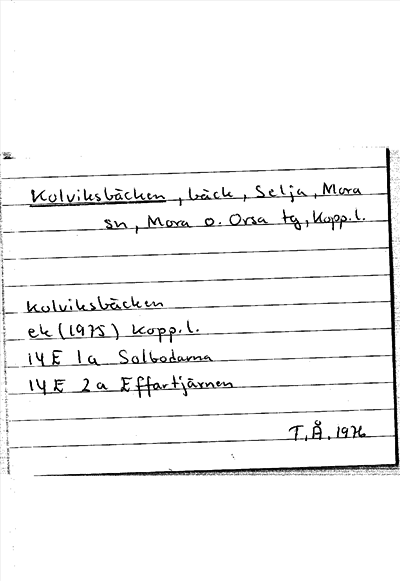 Kolviksbäcken, bäck, Selja, Mora
sn, Mora o. Orsa tg, Kopp.l.
Kolviksbäcken
ek (1975) Kopp.l.
14E 1a Solbodarna
14E 2a Effartjärnen
T.Å. 1976